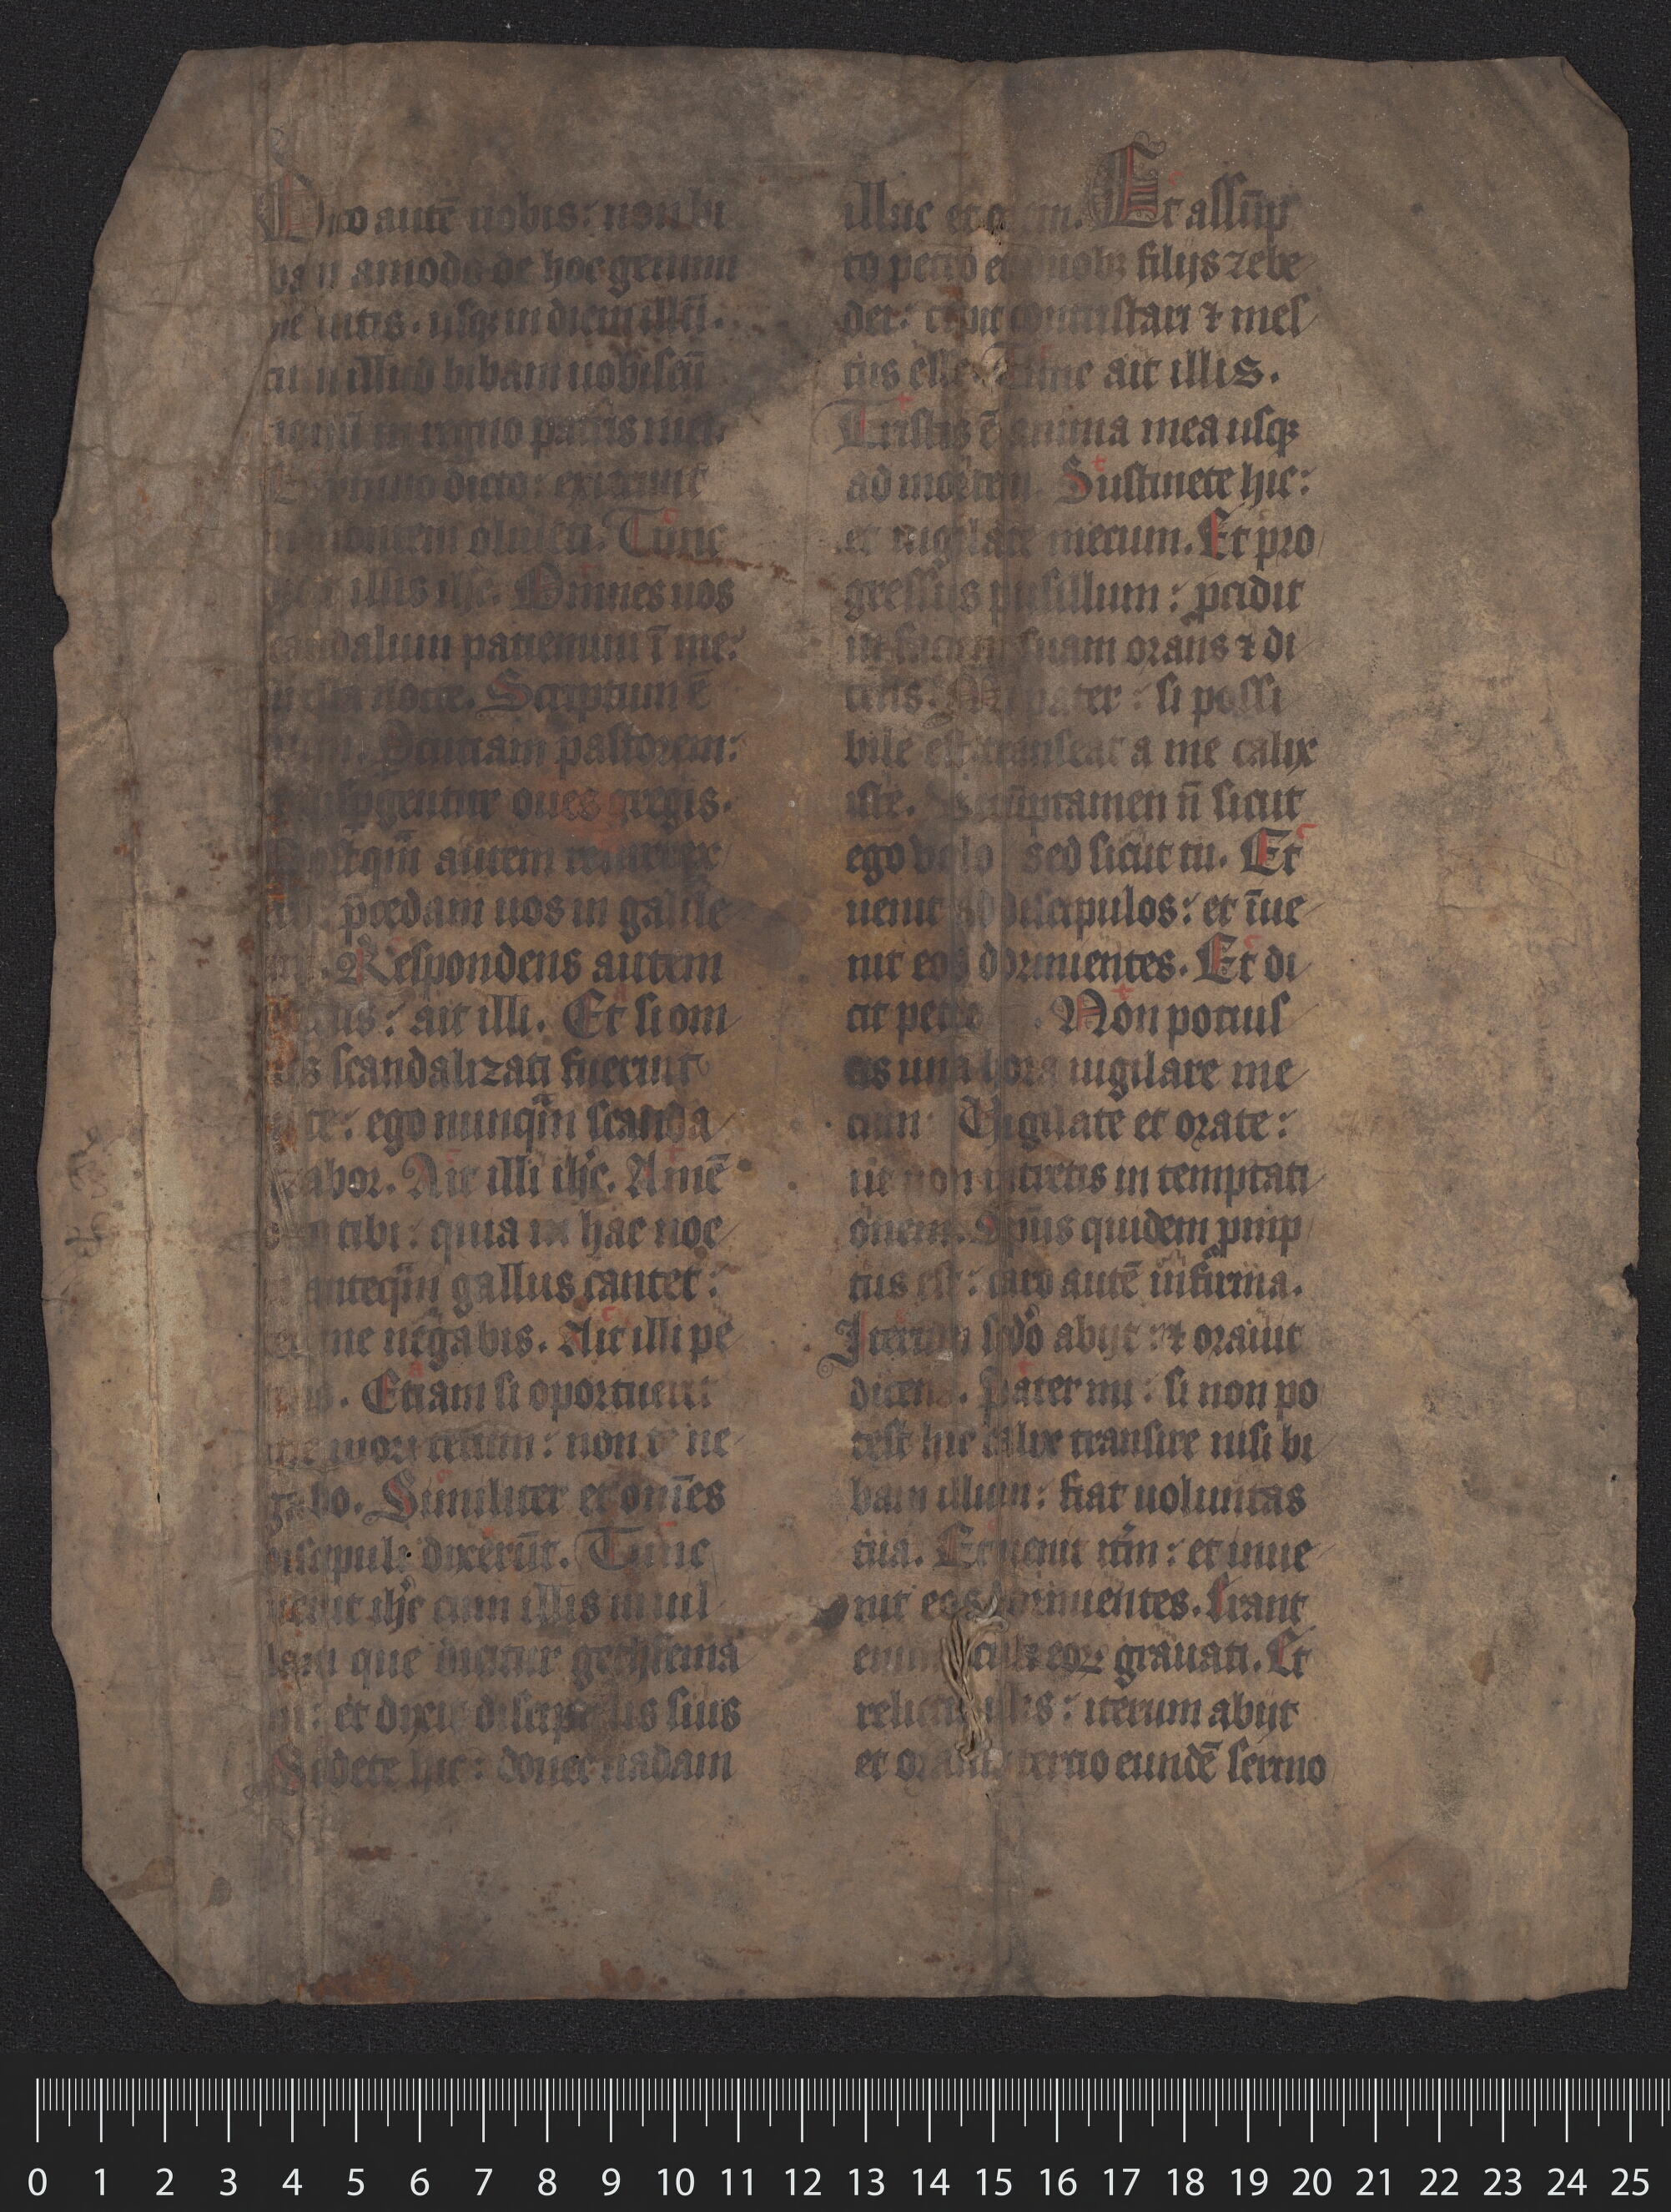 Dico autē uobis: non bi
bam amodo de hoc genimi
ne uitis. usq; in diem illū.
cum illud bibam uobiscū
nouū in regno patris mei.
Et ymno dicto: exierunt
in montem oliueti. Tunc
dicit illis ihc. Omnes uos
scandalum patiemini ī me:
in ista nocte. Scriptum ē
enim. Percutiam pastorem:
et dispgentur oues gregis.
Postqm̄ autem resurrex
ero: p̄cedam uos in galile
am. Respondens autem
petrus: ait illi. Et si om
nes scandalizati fuerint
in te: ego nunqm̄ scanda
lizabor. Ait illi ihc. Amē
dico tibi: quia in hac noc
te anteqm̄ gallus cantet:
ter me negabis. Ait illi pe
trus. Etiam si oportuerit
me mori tecum: non te ne
gabo. Similiter et om̄es
discipuli dixerūt. Tunc
uenit ihc cum illis in uil
lam que dicitur gethsema
ni: et dixit discipulis suis
Sedete hic: donec uadam
illuc et orem. Et assūp
to petro et duob; filijs zebe
dei: cepit contristari ⁊ mes
tus esse. Tunc ait illis.
Tristis ē anima mea usq;
ad mortem. Sustinete hic:
et uigilate mecum. Et pro
gressus pusillum: pcidit
in faciem suam orans ⁊ di
cens. Mi pater: si possi
bile est transeat a me calix
iste. Verūptamen n̄ sicut
ego uolo sed sicut tu. Et
uenit ad discipulos: et īue
nit eos dormientes. Et di
cit petro. Non potuis
tis una hora uigilare me
cum Vigilate et orate:
ut non intretis in temptati
onem. Sp̄us quidem pmp
tus est: caro autē infirma.
Iterum scdo abijt: ⁊ orauit
dicens. Pater mi: si non po
test hic calix transire nisi bi
bam illum: fiat uoluntas
tua. Et uenit itm̄: et inue
nit eos dormientes. Erant
enim oculi eoꝝ grauati. Et
relictis illis: iterum abijt
et orauit tertio eundē sermo